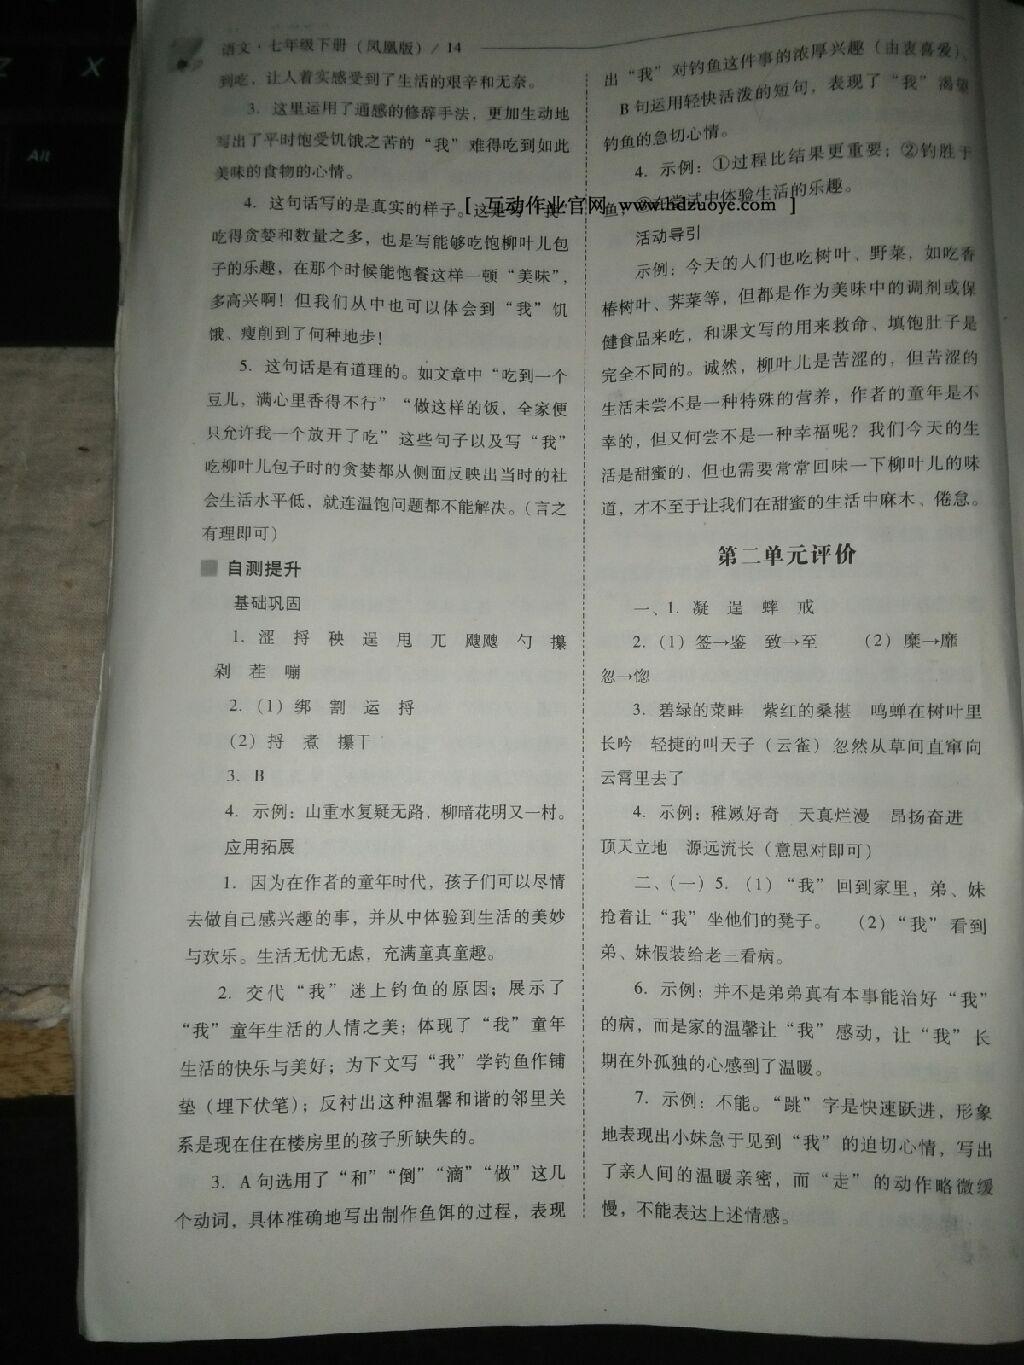 语文·七年级下册（凤凰版）/ 14
到吃，让人着实感受到了生活的艰辛和无奈。
3. 这里运用了通感的修辞手法，更加生动地
写出了平时饱受饥饿之苦的“我”难得吃到如此
美味的食物的心情。
4. 这句话写的是真实的样子。这是写“我”
吃得贪婪和数量之多，也是写能够吃饱柳叶儿包
子的乐趣，在那个时候能饱餐这样一顿“美味”，
多高兴啊！但我们从中也可以体会到“我”饥
饿、瘦削到了何种地步！
5. 这句话是有道理的。如文章中“吃到一个
豆儿，满心里香得不行”“做这样的饭，全家便
只允许我一个放开了吃”这些句子以及写“我”
吃柳叶儿包子时的贪婪都从侧面反映出当时的社
会生活水平低，就连温饱问题都不能解决。（言之
有理即可）
自测提升
基础巩固
1. 涩 捋 秧 逞 甩 兀 飕飕 勺 攥
剁 茬 嘣
2.（1）绑 割 运 捋
（2）捋 煮 攥干
3. B
4. 示例：山重水复疑无路，柳暗花明又一村。
应用拓展
1. 因为在作者的童年时代，孩子们可以尽情
去做自己感兴趣的事，并从中体验到生活的美妙
与欢乐。生活无忧无虑，充满童真童趣。
2. 交代“我”迷上钓鱼的原因；展示了
“我”童年生活的人情之美；体现了“我”童年
生活的快乐与美好；为下文写“我”学钓鱼作铺
垫（埋下伏笔）；反衬出这种温馨和谐的邻里关
系是现在住在楼房里的孩子所缺失的。
3. A句选用了“和”“倒”“滴”“做”这几
个动词，具体准确地写出制作鱼饵的过程，表现
出“我”对钓鱼这件事的浓厚兴趣（由衷喜爱）、
B句运用轻快活泼的短句，表现了“我”渴望
钓鱼的急切心情。
4. 示例：①过程比结果更重要；②钓胜于
鱼；③在尝试中体验生活的乐趣。
[ 互动作业官网 www.hdzuoye.com ]
活动导引
示例：今天的人们也吃树叶、野菜，如吃香
椿树叶、荠菜等，但都是作为美味中的调剂或保
健食品来吃，和课文写的用来救命、填饱肚子是
完全不同的。诚然，柳叶儿是苦涩的，但苦涩的
生活未尝不是一种特殊的营养，作者的童年是不
幸的，但又何尝不是一种幸福呢？我们今天的生
活是甜蜜的，但也需要常常回味一下柳叶儿的味
道，才不至于让我们在甜蜜的生活中麻木、倦怠。
第二单元评价
一、1. 凝 逞 蟀 戒
2.（1）签→鉴 致→至 （2）糜→靡
忽→惚
3. 碧绿的菜畦 紫红的桑椹 鸣蝉在树叶里
长吟 轻捷的叫天子（云雀）忽然从草间直窜向
云霄里去了
4. 示例：稚嫩好奇 天真烂漫 昂扬奋进
顶天立地 源远流长（意思对即可）
二、（一）5.（1）“我”回到家里，弟、妹
抢着让“我”坐他们的凳子。 （2）“我”看到
弟、妹假装给老三看病。
6. 示例：并不是弟弟真有本事能治好“我”
的病，而是家的温馨让“我”感动，让“我”长
期在外孤独的心感到了温暖。
7. 示例：不能。“跳”字是快速跃进，形象
地表现出小妹急于见到“我”的迫切心情，写出
了亲人间的温暖亲密，而“走”的动作略微缓
慢，不能表达上述情感。
X
Alt